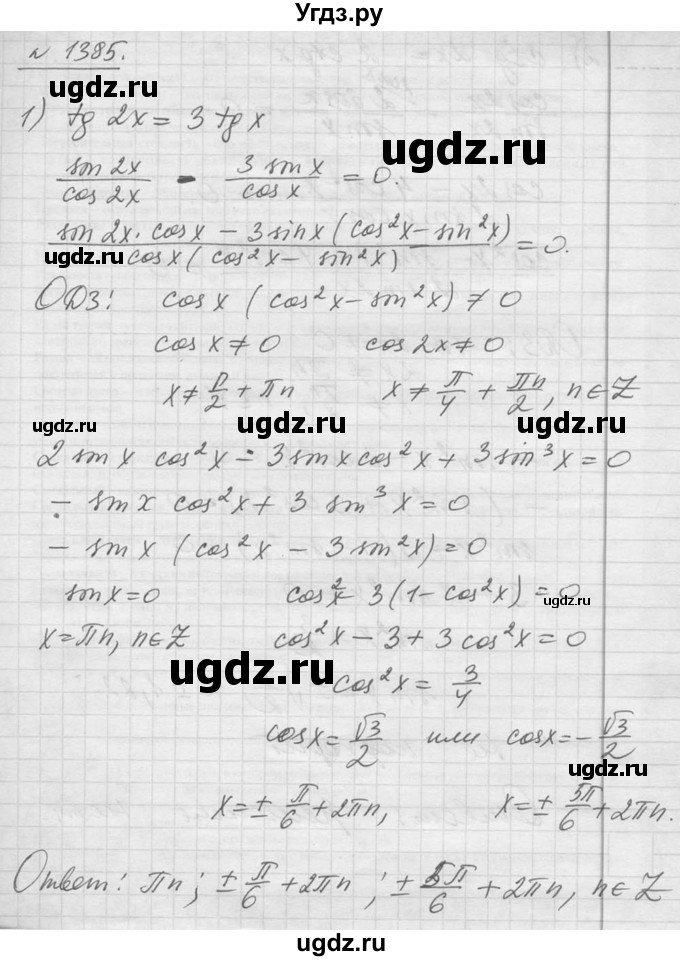 Угдз.ру
№ 1385.
ugdz.ru
1) tg 2x = 3 tg x
sin 2x / cos 2x - 3 sin x / cos x = 0.
(sin 2x · cos x - 3 sin x (cos²x - sin²x)) / (cos x (cos²x - sin²x)) = 0.
ugdz.ru ugdz.ru
ОДЗ: cos x (cos²x - sin²x) ≠ 0
cos x ≠ 0 cos 2x ≠ 0
x ≠ π/2 + πn x ≠ π/4 + πn/2, n ∈ Z
ugdz.ru ugdz.ru ugdz.ru
2 sin x cos²x - 3 sin x cos²x + 3 sin³x = 0
- sin x cos²x + 3 sin³x = 0
- sin x (cos²x - 3 sin²x) = 0
sin x = 0 cos²x - 3 (1 - cos²x) = 0
ugdz.ru
x = πn, n ∈ Z cos²x - 3 + 3 cos²x = 0
ugdz.ru
cos²x = 3/4
cos x = √3/2 или cos x = - √3/2
ugdz.ru
x = ± π/6 + 2πn, x = ± 5π/6 + 2πn.
Ответ: πn; ± π/6 + 2πn; ± 5π/6 + 2πn, n ∈ Z
ugdz.ru ugdz.ru
ugdz.ru